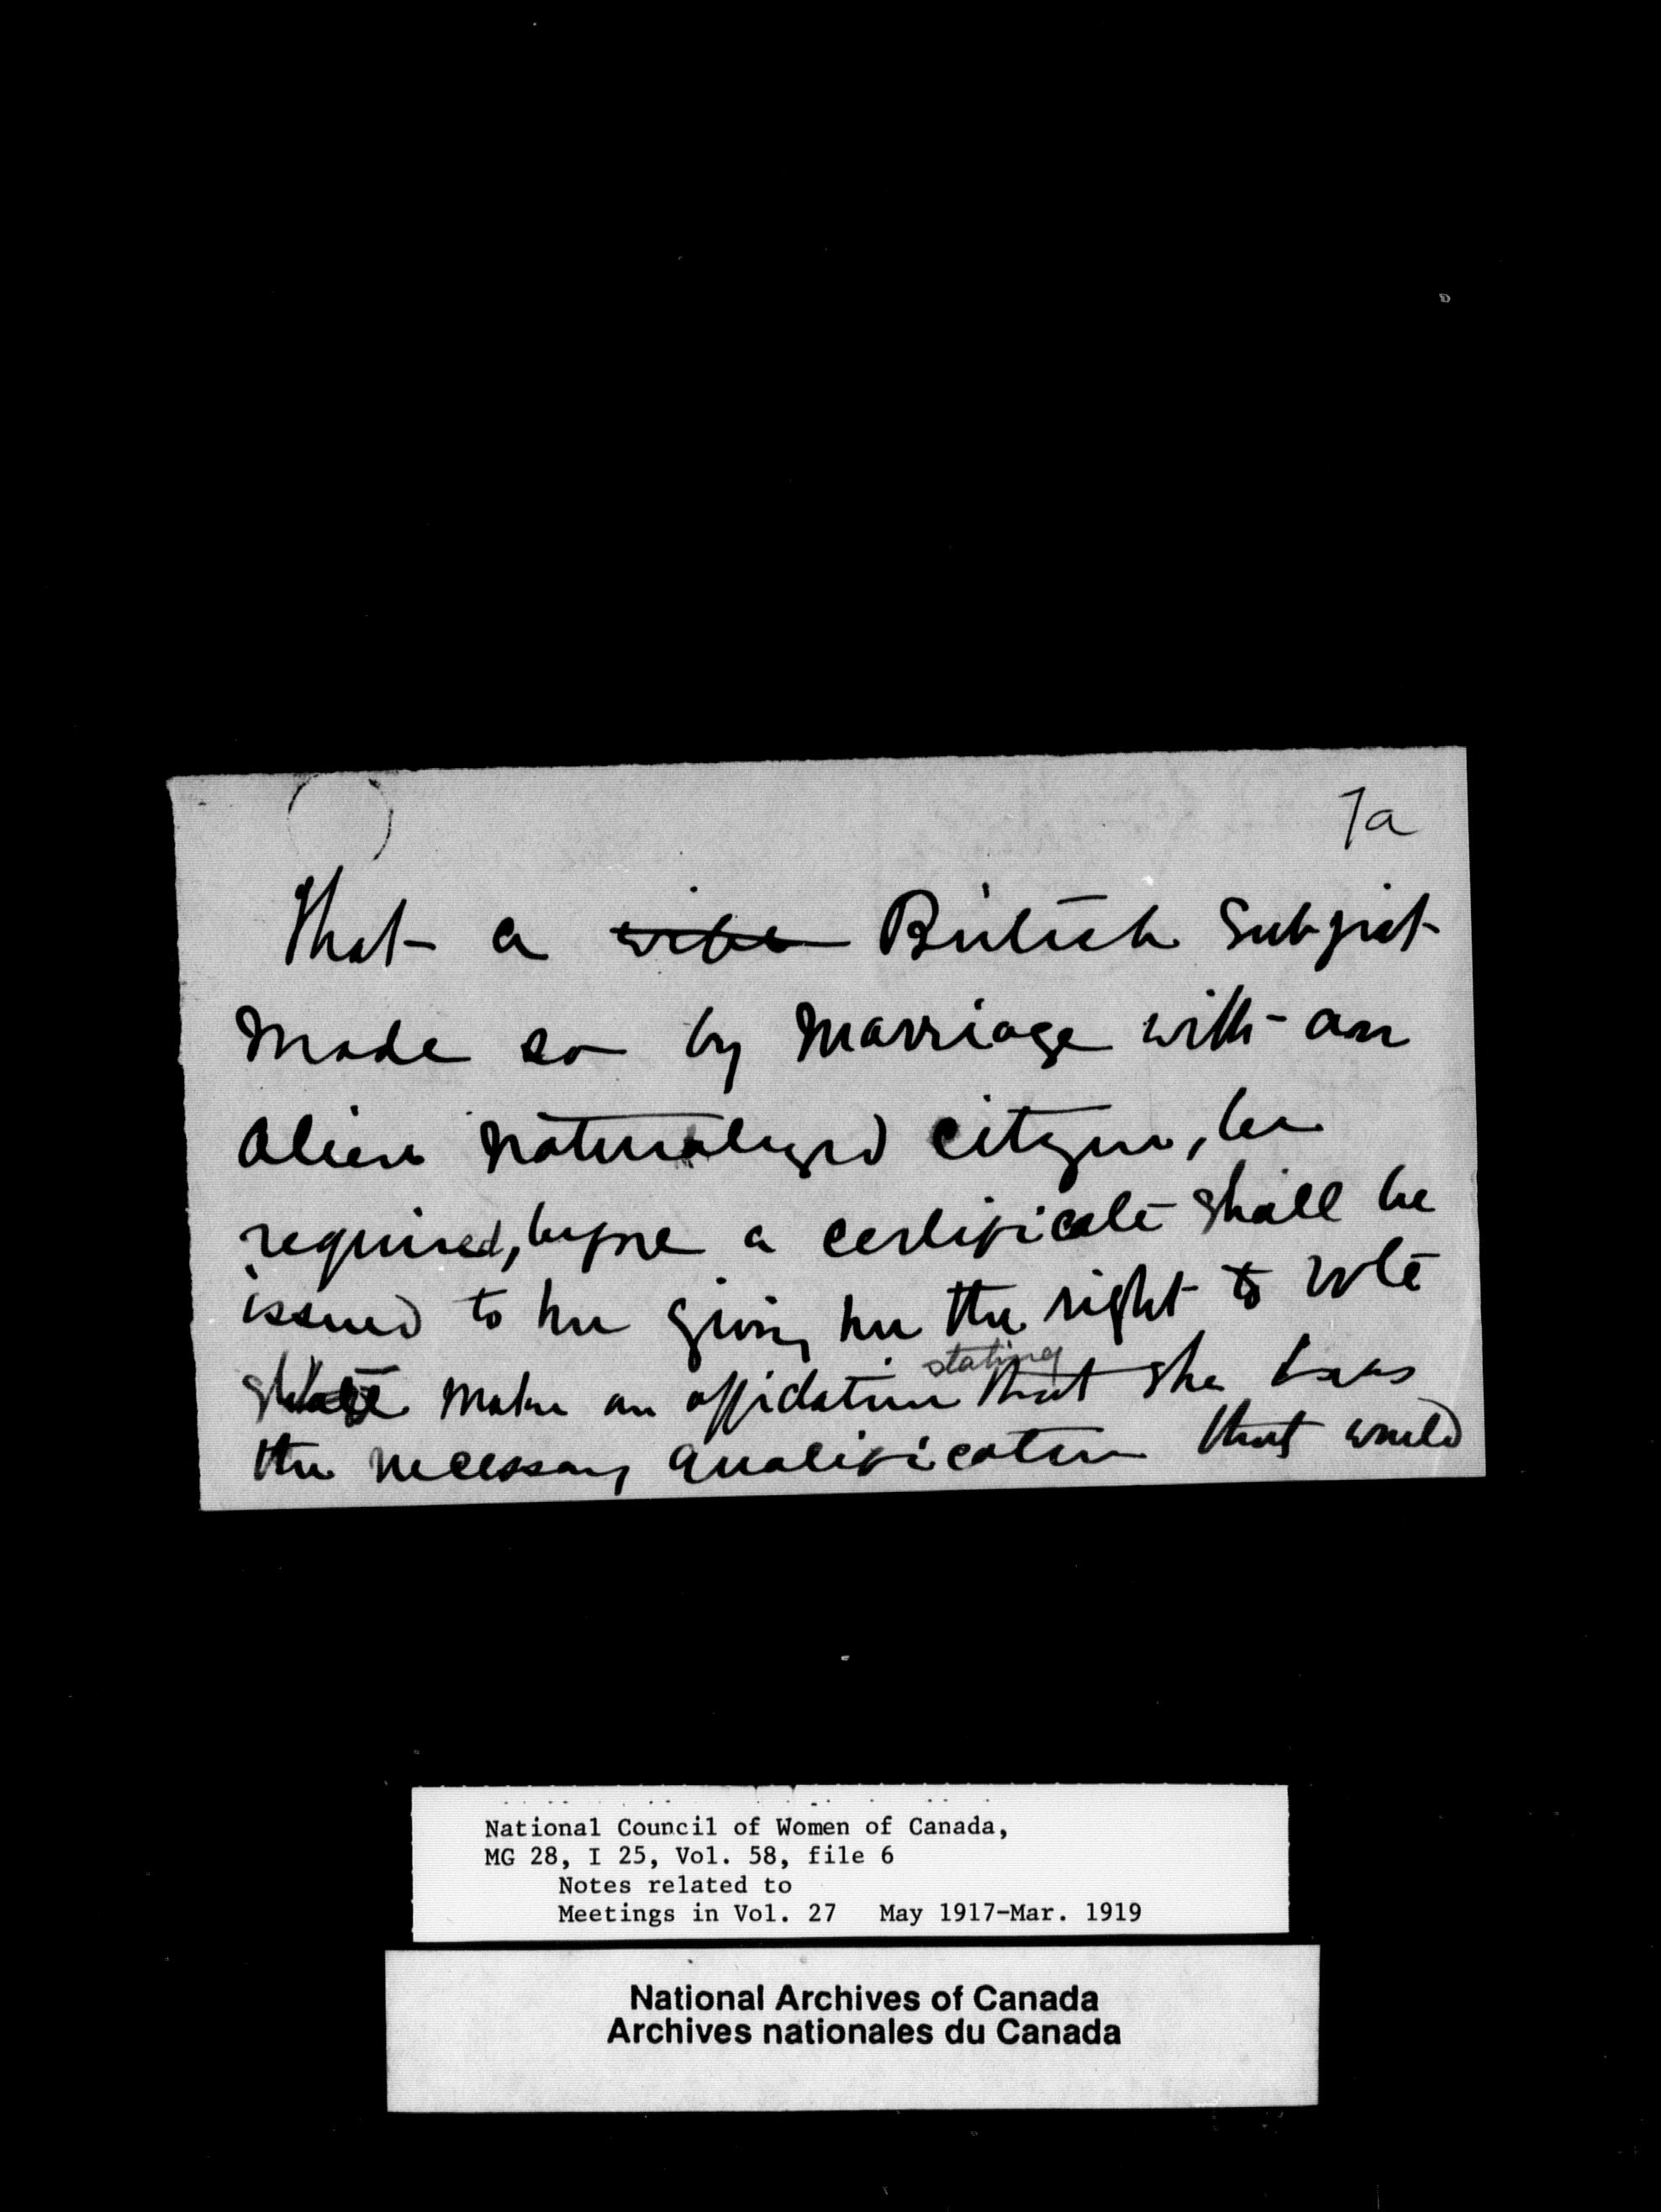 7a
That a wife British Subject
Made so by Marriage with an
Alien Naturalized Citizen, be
required, before a certificate shall be
issued to her giving her the right to vote
make an affidavit stating that she has
the necessary qualification that would
National Council of Women of Canada,
MG 28, I 25, Vol. 58, file 6
Notes related to
Meetings in Vol. 27 May 1917-Mar. 1919
National Archives of Canada
Archives nationales du Canada